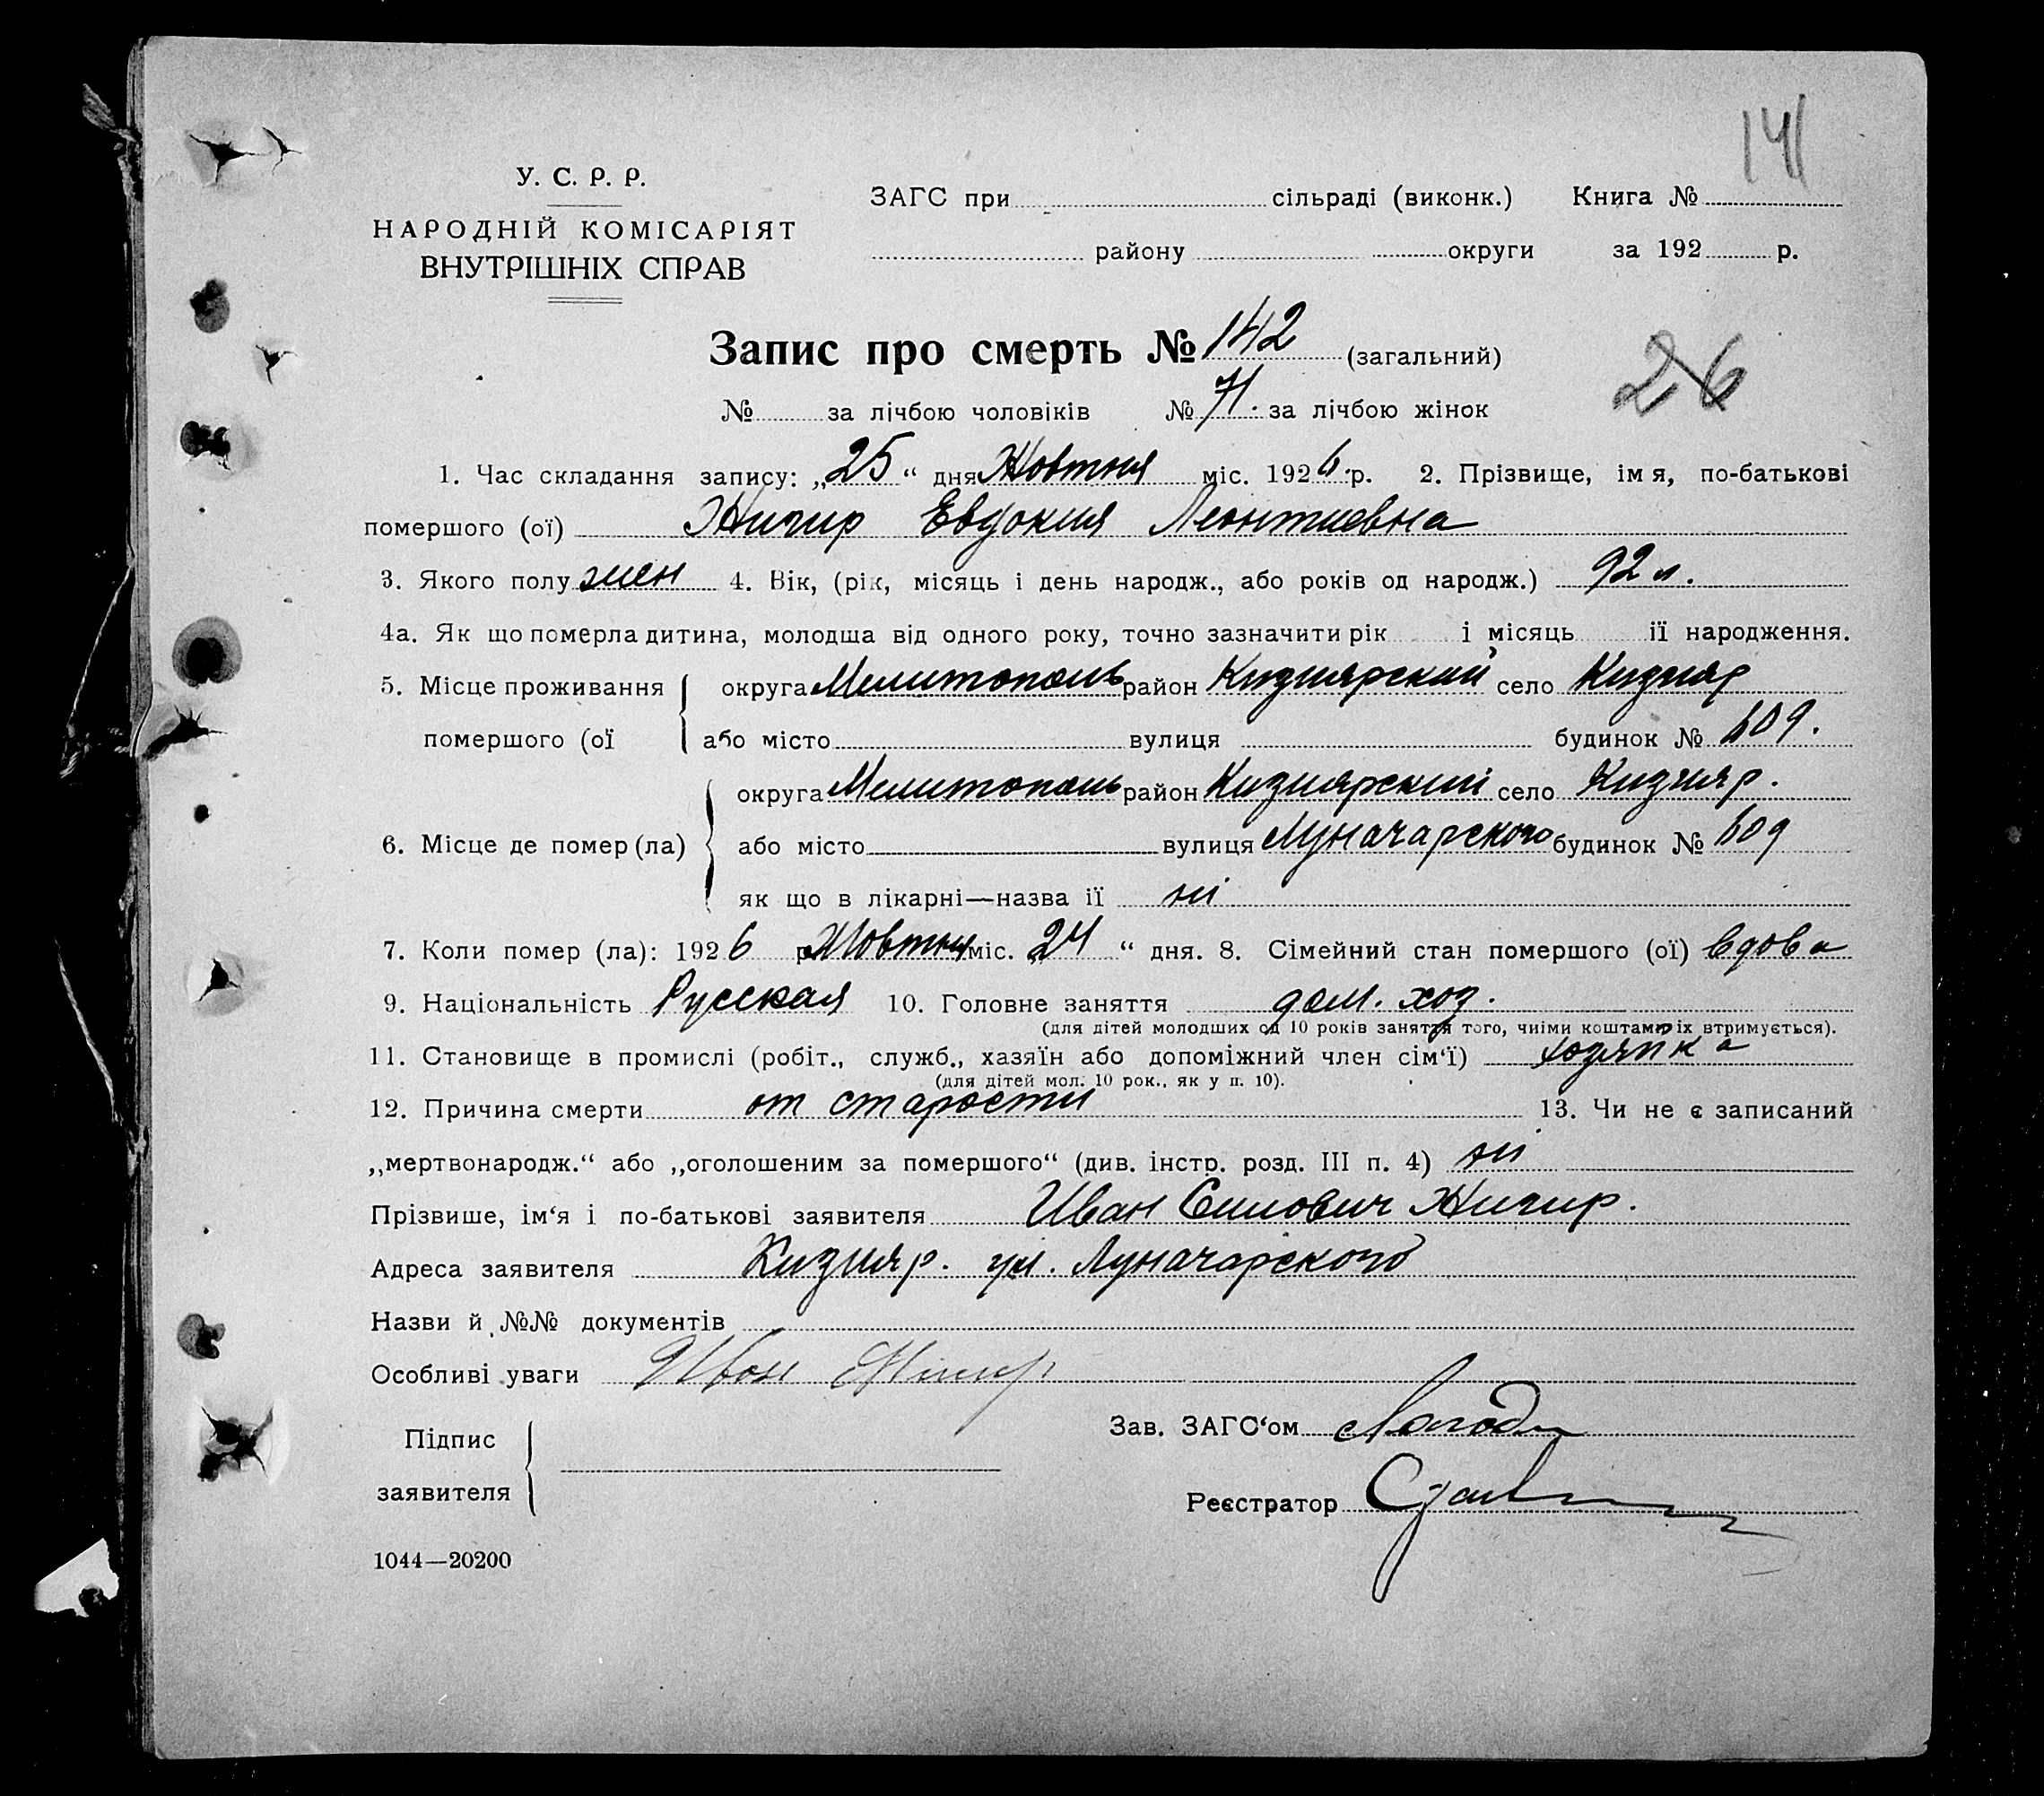 141
У. С. Р. Р.
НАРОДНІЙ КОМІСАРІЯТ
ВНУТРІШНІХ СПРАВ
ЗАГС при сільраді (виконк.) Книга №
району округи за 192 р.
Запис про смерть № 142 (загальний)
26
№ за лічбою чоловіків № 71. за лічбою жінок
1. Час складання запису: „25“ дня Жовтня міс. 1926 р. 2. Прізвище, ім я, по-батькові
помершого (ої) Жигир Евдокия Леонтиевна
3. Якого полу жен 4. Вік, (рік, місяць і день народж., або років од народж.) 92 л.
4а. Як що померла дитина, молодша від одного року, точно зазначити рік і місяць її народження.
5. Місце проживання округа Мелитополь район Кизиярский село Кизияр
помершого (ої або місто вулиця будинок № 609.
округа Мелитополь район Кизиярский село Кизияр.
6. Місце де помер (ла) або місто вулиця Луначарского будинок № 609
як що в лікарні—назва її ні
7. Коли помер (ла): 1926 р Жовтня міс. „24“ дня. 8. Сімейний стан помершого (ої) вдова
9. Національність Русская 10. Головне заняття дом. хоз.
(для дітей молодших од 10 років заняття того, чиїми коштами їх втримується).
11. Становище в промислі (робіт., служб., хазяїн або допоміжний член сім‘ї) хозяйка
(для дітей мол. 10 рок., як у п. 10).
12. Причина смерти от старости 13. Чи не є записаний
„мертвонародж.“ або „оголошеним за помершого“ (див. інстр. розд. III п. 4) ні
Прізвише, ім‘я і по-батькові заявителя Иван Силович Жигир.
Адреса заявителя Кизияр. ул. Луначарского
Назви й №№ документів
Особливі уваги Иван Жигир
Підпис
заявителя
Зав. ЗАГС‘ом
Реєстратор
1044—20200